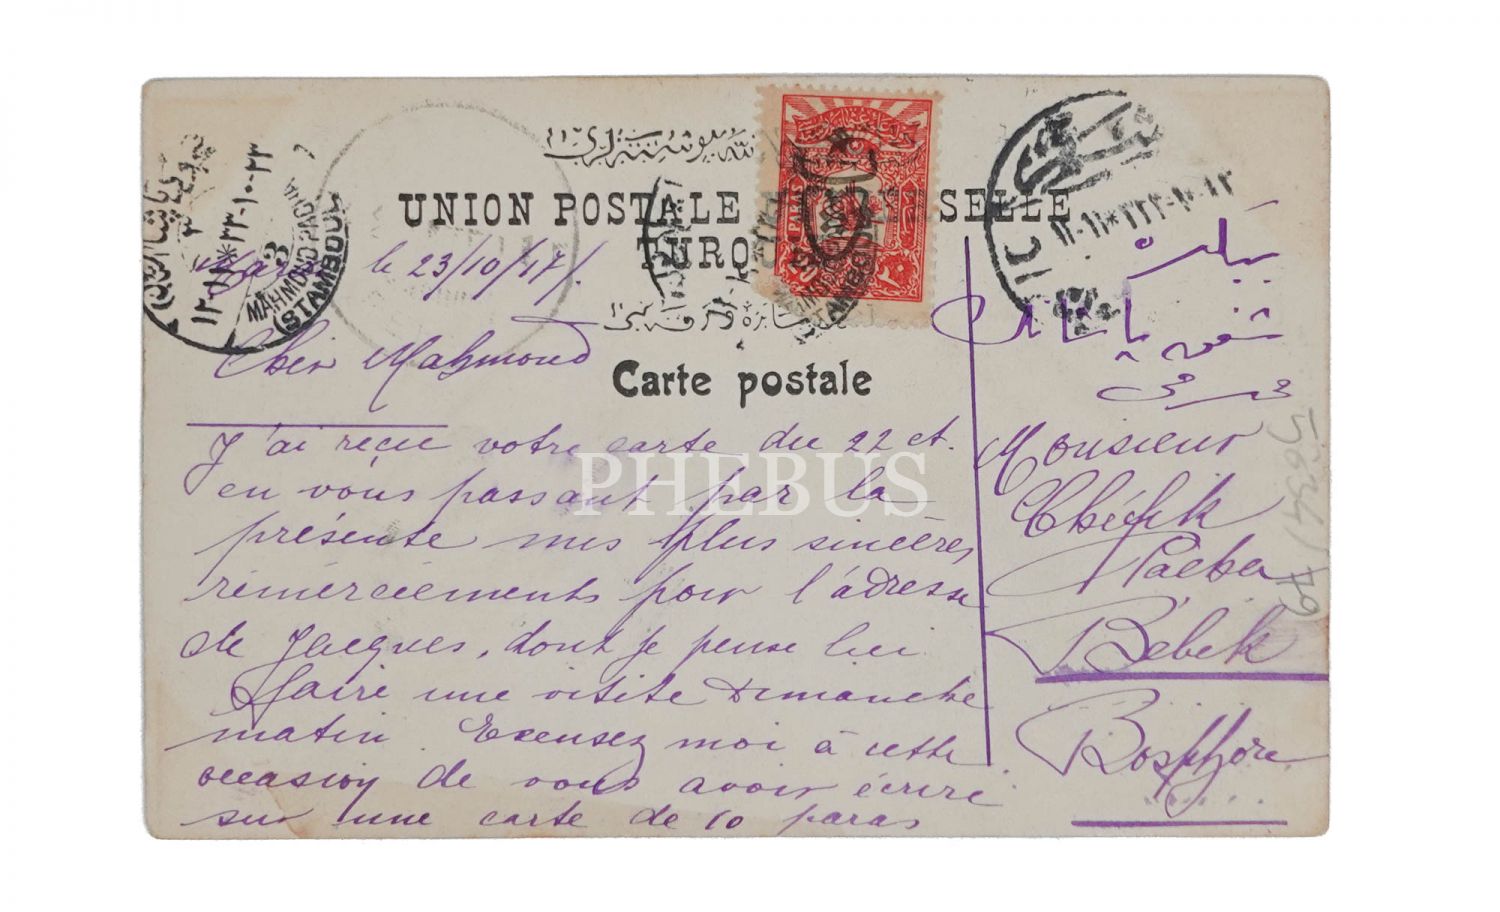 UNION POSTALE SELLE
TURQ
Carte postale
MAHMOUD PACHA
(STAMBOUL)
3
PARAS
le 23/10/17/.
Cher Mahmoud
J'ai reçu votre carte du 22 ct.
en vous passant par la
présente mes plus sincères
rémerciements pour l'adresse
de Jacques, dont je pense lui
faire une visite Dimanche
matin. Excusez moi à cette
occasion de vous avoir écrire
sur une carte de 10 paras
ببكده
شفيق پاشا
Monsieur
Chéfik
Pacha
Bébek
Bosphore
PHEBUS